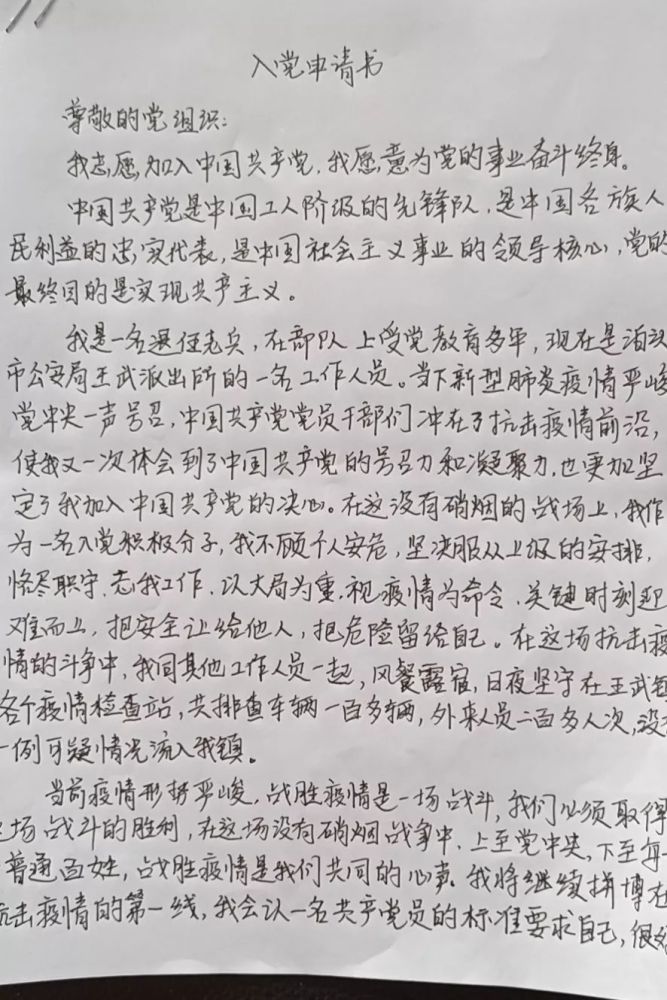 入党申请书
尊敬的党组织:
我志愿加入中国共产党,我愿意为党的事业奋斗终身。
中国共产党是中国工人阶级的先锋队,是中国各族人
民利益的忠实代表,是中国社会主义事业的领导核心,党的
最终目的是实现共产主义。
我是一名退伍老兵,在部队上受党教育多年,现在是泊头
市公安局王武派出所的一名工作人员。当下新型肺炎疫情严峻
党中央一声号召,中国共产党党员干部们冲在了抗击疫情前沿,
使我又一次体会到了中国共产党的号召力和凝聚力,也更加坚
定了我加入中国共产党的决心。在这没有硝烟的战场上,我作
为一名入党积极分子,我不顾个人安危,坚决服从上级的安排,
恪尽职守、忘我工作,以大局为重,视疫情为命令、关键时刻迎
难而上,把安全让给他人,把危险留给自己。在这场抗击疫
情的斗争中,我同其他工作人员一起,风餐露宿,日夜坚守在王武镇
各个疫情检查站,共排查车辆一百多辆,外来人员二百多人次,没有
一例可疑情况流入我镇。
当前疫情形势严峻,战胜疫情是一场战斗,我们必须取得
这场战斗的胜利,在这场没有硝烟战争中,上至党中央,下至每一
普通百姓,战胜疫情是我们共同的心声。我将继续拼搏在
抗击疫情的第一线,我会以一名共产党员的标准要求自己,很好